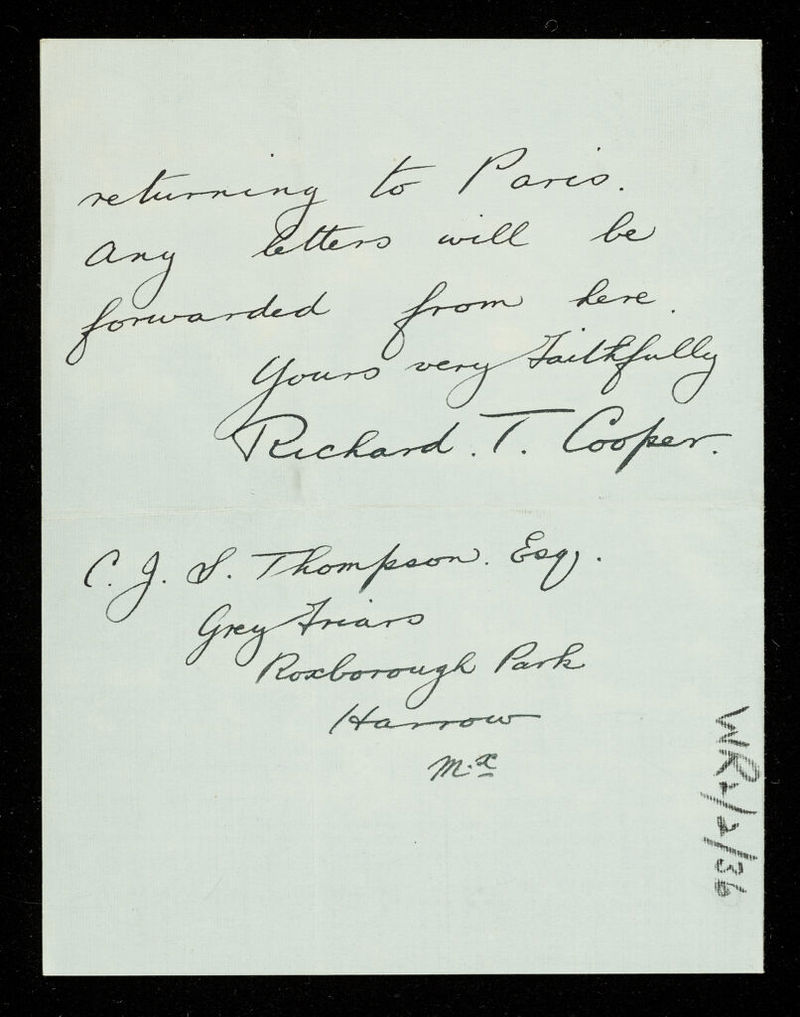 returning to Paris.
Any letters will be
forwarded from here.
Yours very Faithfully
Richard. T. Cooper.
C. J. S. Thompson. Esq.
Grey Friars
Roxborough Park
Harrow
M.x
WR2/2/36